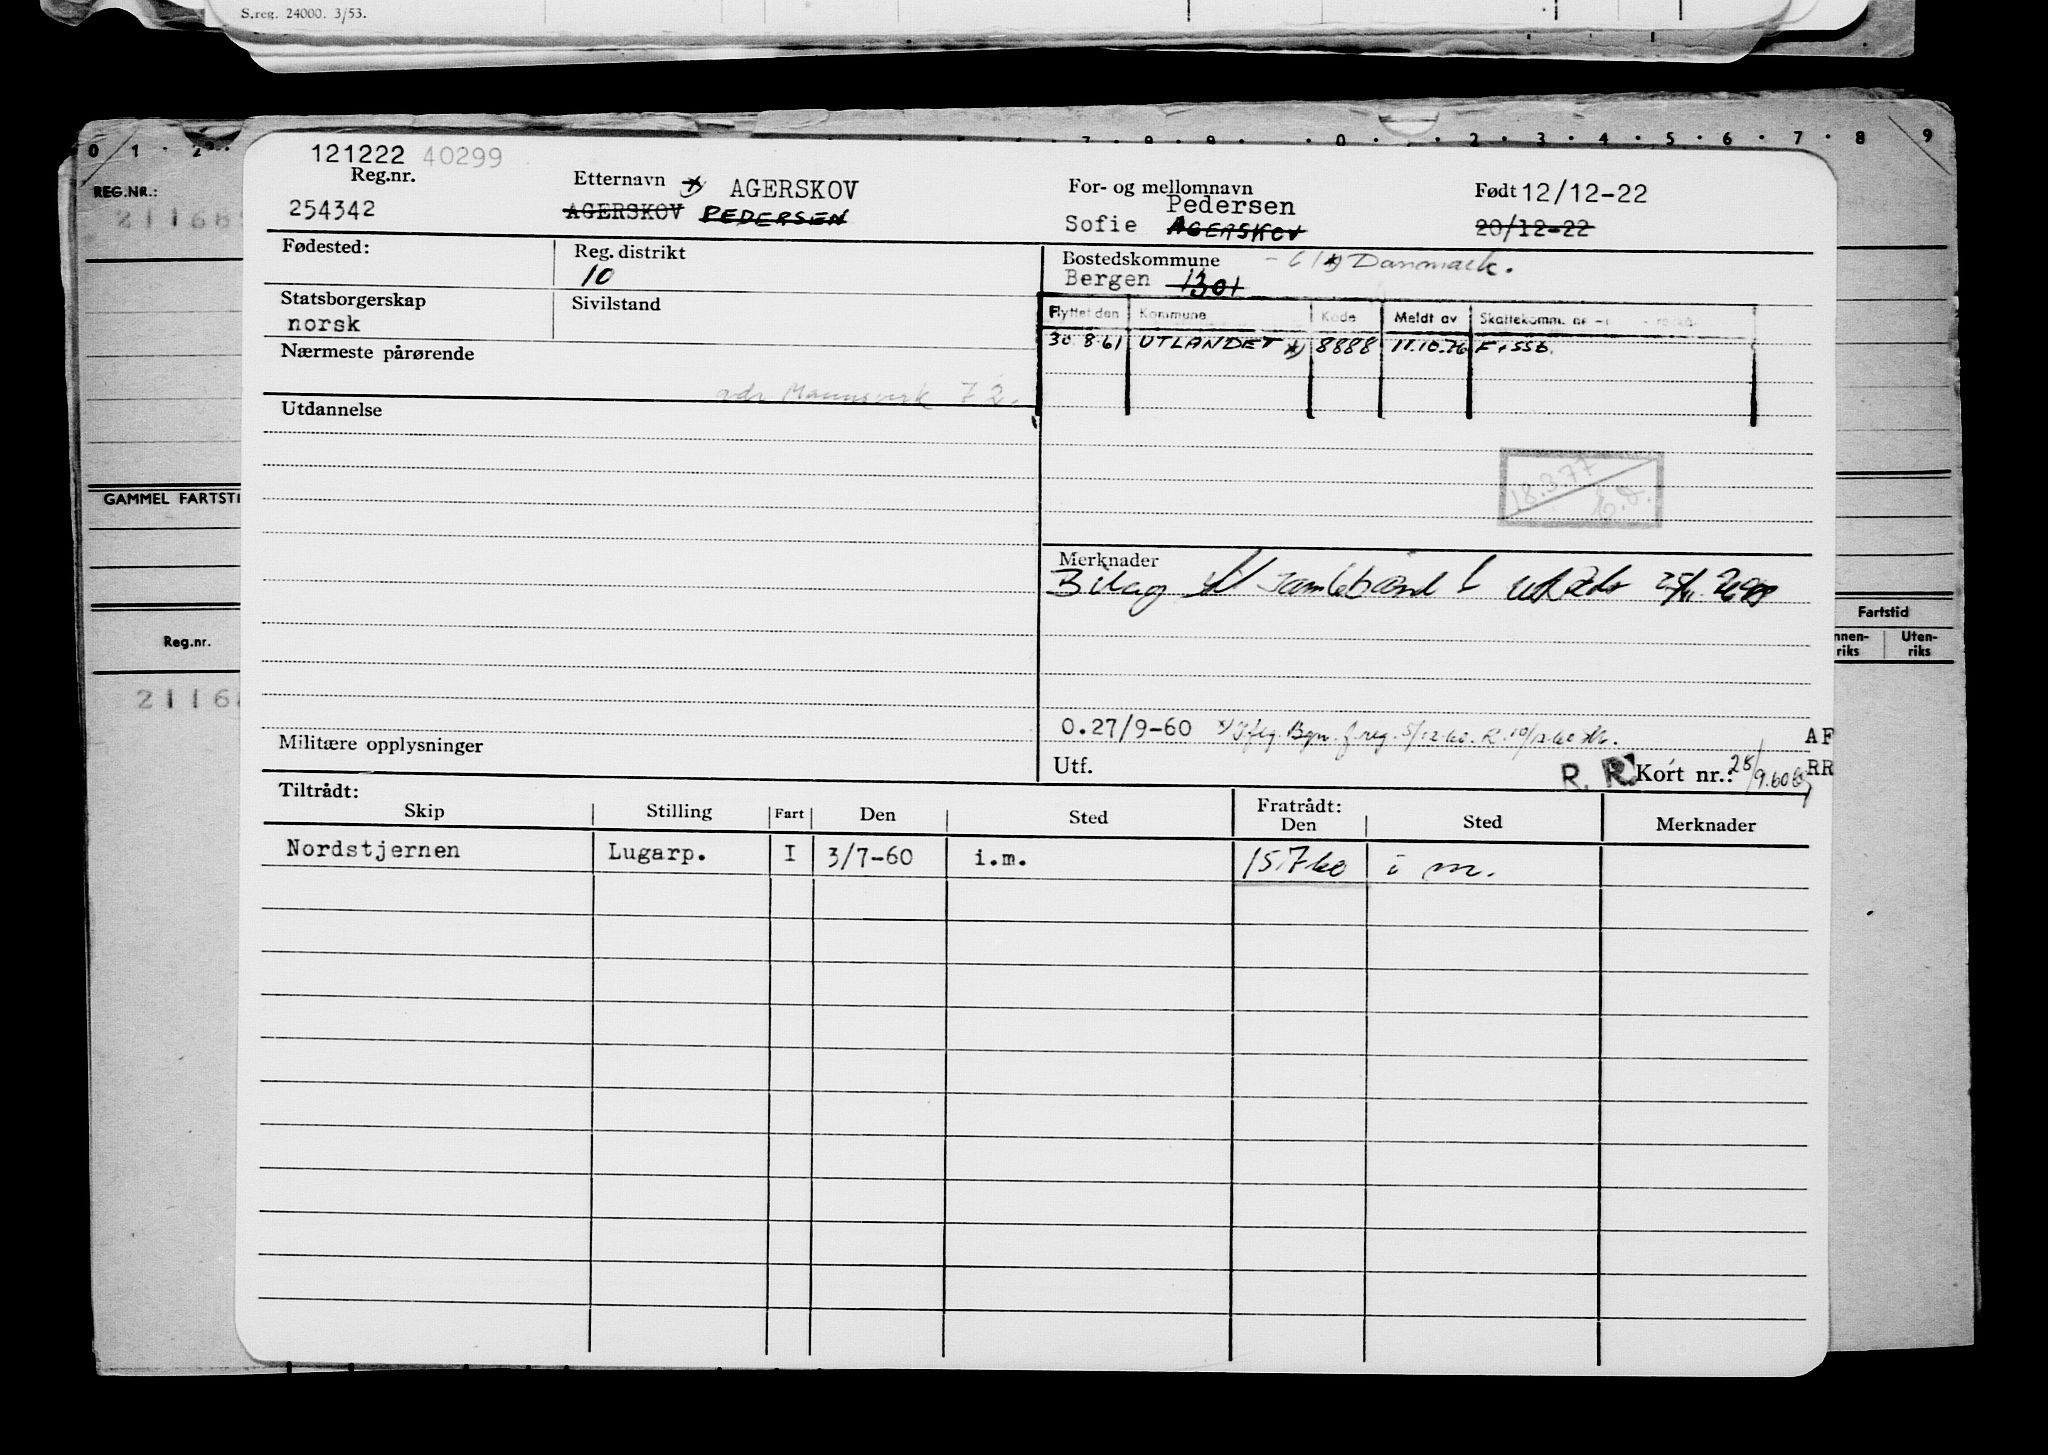 S.reg. 24000. 3/53.
0 1 2 7 8 9 0 2 3 4 5 6 7 8 9
REG.NR.:
GAMMEL FARTSTI
Reg.nr.
Fartstid
nnen-
riks
Uten-
riks
121222 40299
Reg.nr.
254342
Etternavn *) AGERSKOV
AGERSKOV PEDERSEN
For- og mellomnavn
Pedersen
Sofie AGERSKOV
Født 12/12-22
20/12-22
Fødested:
Reg. distrikt
10
Bostedskommune
Danmark.
Bergen 1301
Statsborgerskap
norsk
Sivilstand
Flyttet den Kommune Kode Meldt av Skattekomm.
30 8 61 UTLANDET *) 8888 11.10.76 F. SSB.
Nærmeste pårørende
adr Mannsverk 72.
Utdannelse
18.3.77
Merknader
Bilag til
0.27/9-60 *) Iflg. Bgn. f.reg. 5/12-60.
Militære opplysninger
Utf.
R. R. Kort nr.: 28/9.60
AF
RR
Tiltrådt:
Skip Stilling Fart Den Sted
Fratrådt:
Den Sted Merknader
Nordstjernen Lugarp. I 3/7-60 i.m. 15.7 60 i m.